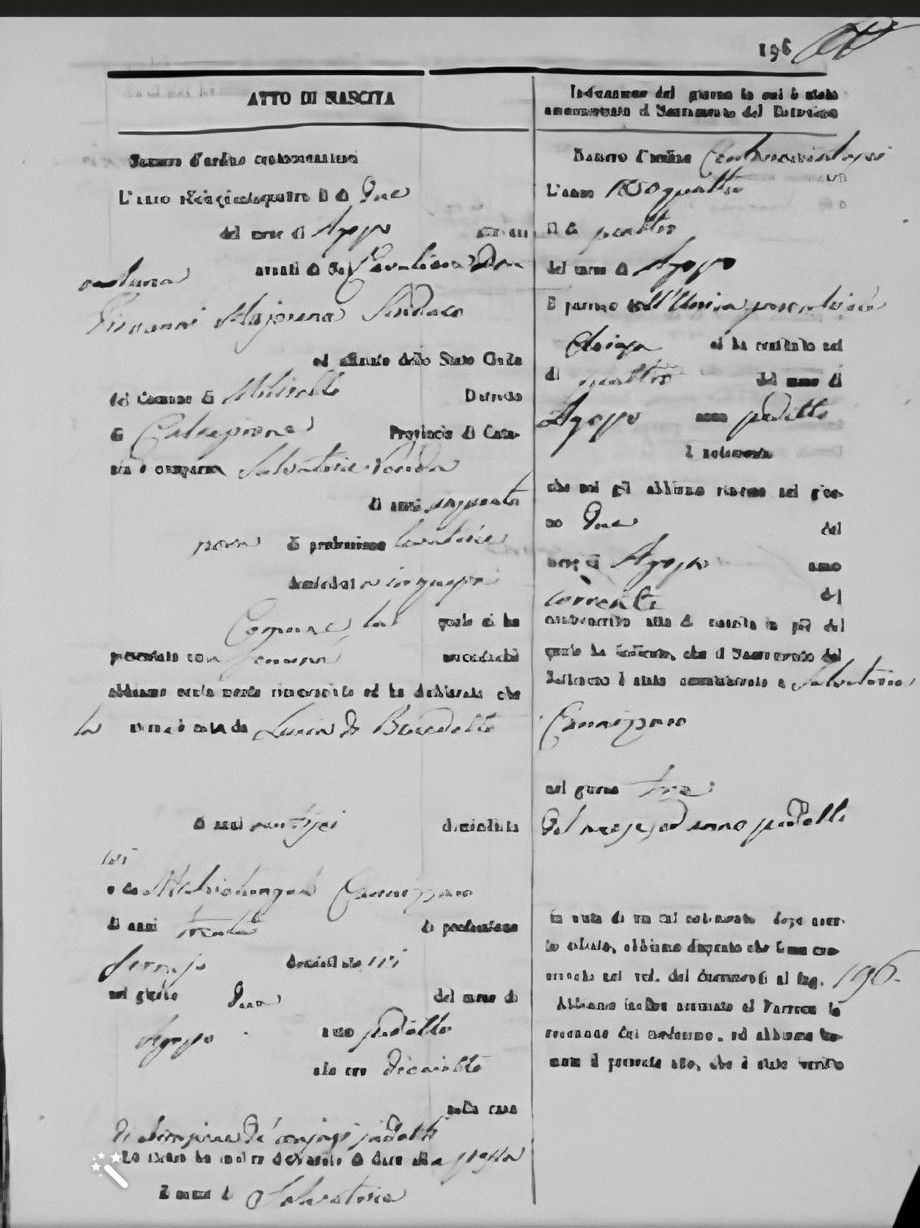 196
ATTO DI NASCITA
Numero d'ordine centonovantasei
L'anno milleottocentocinquantaquattro il dì Due
del mese di Agosto
avanti di Noi Cavaliere Don
Giovanni Majorana Sindaco
ed uffiziale dello Stato Civile
del Comune di Militello Distretto
di Caltagirone Provincia di Cata-
nia è comparsa Salvatrice
di anni cinquanta
di professione levatrice
domiciliata in questa
Comune la quale ci ha
presentato una femina secondochè
abbiamo ocularmente riconosciuto ed ha dichiarato che
la stessa è nata da Lucia di Benedetto
di anni ventisei domiciliata
ivi
e da Michelangelo Cannizzaro
di anni trenta di professione
domiciliato ivi
nel giorno Due del mese di
Agosto anno suddetto
alle ore diciotto
nella casa
di abitazione de' conjugi suddetti
Lo stesso ha inoltre dichiarato di dare alla stessa
il nome di Salvatrice
Indicazione del giorno in cui è stato
amministrato il Sacramento del Battesimo
Numero d'ordine Centonovantasei
L'anno 1850quattro
Il dì quattro
del mese di Agosto
Il parroco dell'Unica parrocchiale
Chiesa ci ha restituito nel
dì quattro del mese di
Agosto anno suddetto
il notamento
che noi gli abbiamo rimesso nel gior-
no Due del
mese di Agosto anno
corrente del
controscritto atto di nascita in piè del
quale ha indicato, che il Sacramento del
Battesimo è stato amministrato a Salvatrice
Cannizzaro
nel giorno tre
del mese, ed anno suddetti
in vista di un tal notamento dopo aver-
lo cifrato, abbiamo disposto che fosse con-
servato nel vol. dei documenti al fog. 196.
Abbiamo inoltre accusato al Parroco la
recezione del medesimo, ed abbiamo for-
mato il presente atto, che è stato iscritto